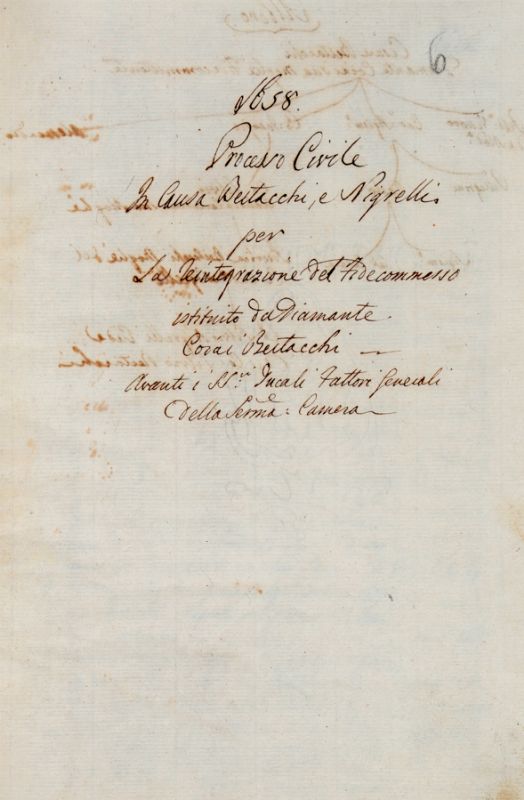 6
1658.
Processo Civile
In Causa Bertacchi, e Nigrelli
per
La Reintegrazione del Fidecommesso
istituito da Diamante
Corai Bertacchi —
Avanti i SS.ri Ducali Fattori Generali
della Serma: Camera —